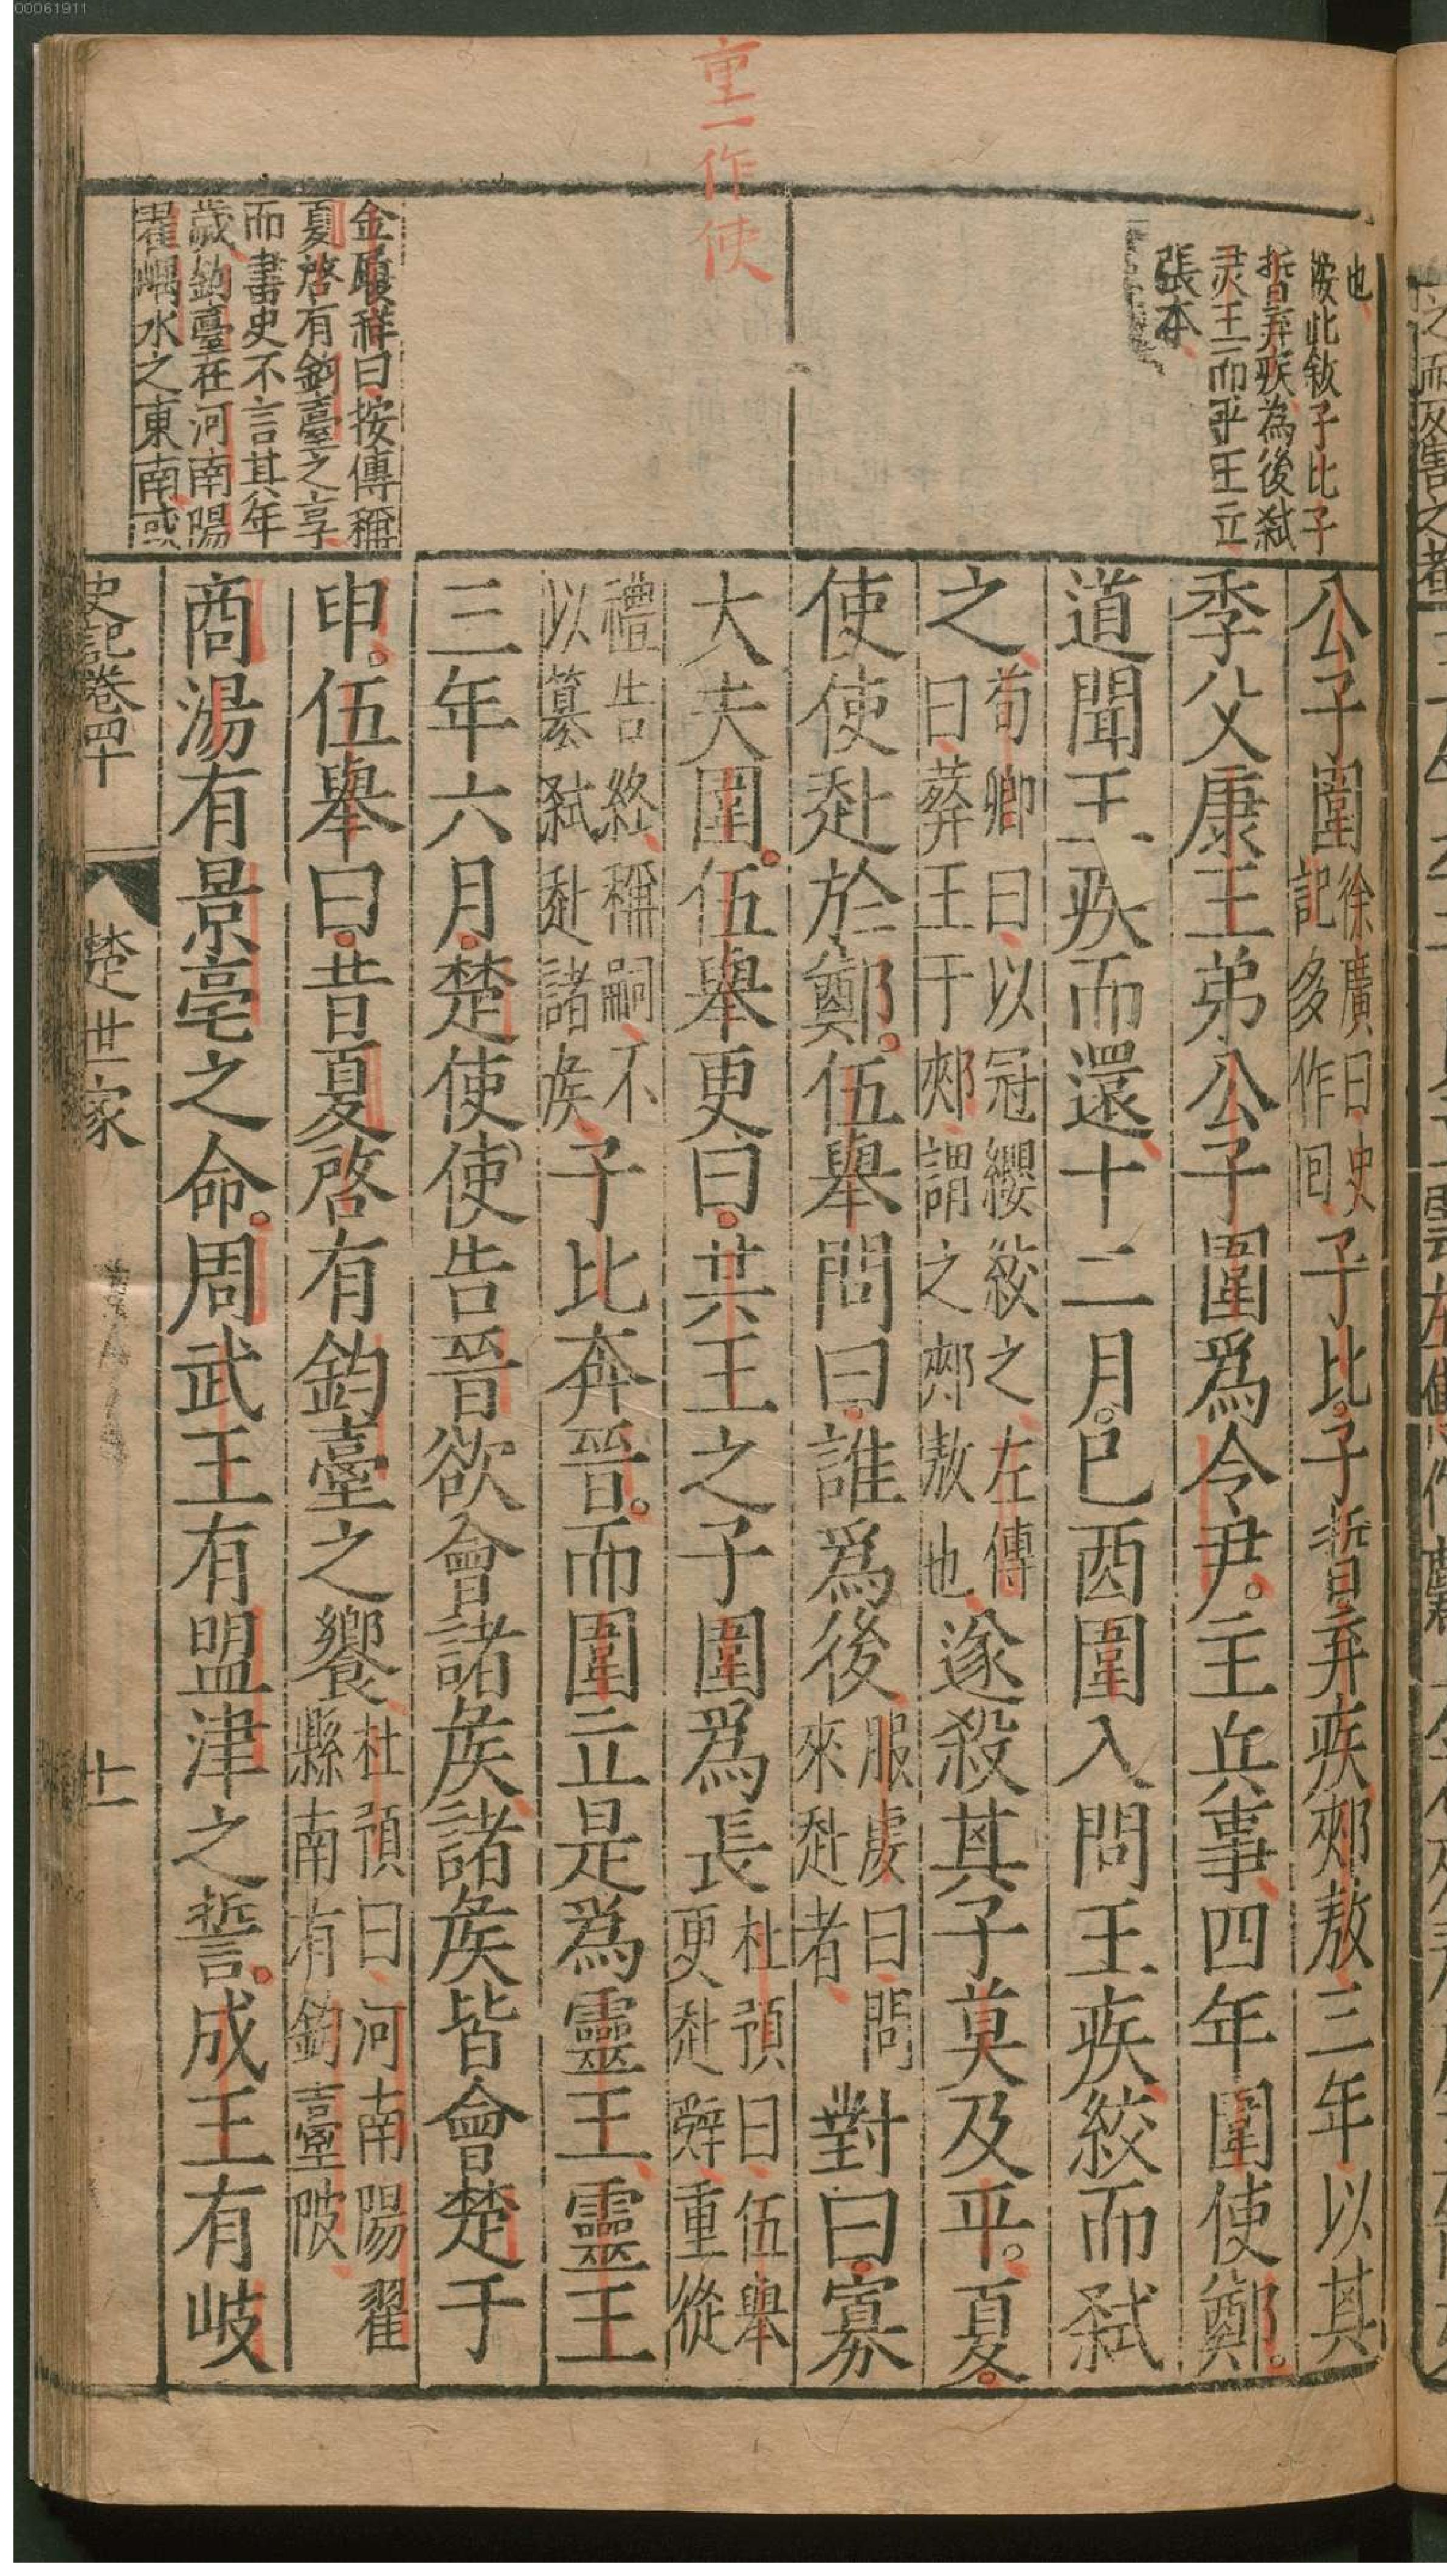 00061911
重一作使
也
按此敘子比子
晳弃疾為後弑
灵王而平王立
張本
金履祥曰按傳稱
夏啓有鈞臺之享
而書史不言其年
歲鈞臺在河南陽
翟嵎水之東南或
公子圍徐廣曰史記多作回子比子晳弃疾郟敖三年以其
季父康王弟公子圍爲令尹主兵事四年圍使鄭
道聞王疾而還十二月己酉圍入問王疾絞而弑
之荀卿曰以冠纓絞之左傳曰葬王于郟謂之郟敖也遂殺其子莫及平夏
使使赴於鄭伍舉問曰誰爲後服虔曰問來赴者對曰寡
大夫圍伍舉更曰共王之子圍爲長杜預曰伍舉更赴辤重從
禮告終稱嗣不以簒弑赴諸矦子比奔晉而圍立是爲靈王靈王
三年六月楚使使告晉欲會諸矦諸矦皆會楚于
申伍舉曰昔夏啓有鈞臺之饗杜預曰河南陽翟縣南有鈞臺陂
商湯有景亳之命周武王有盟津之誓成王有岐
史記卷四十 楚世家 十一